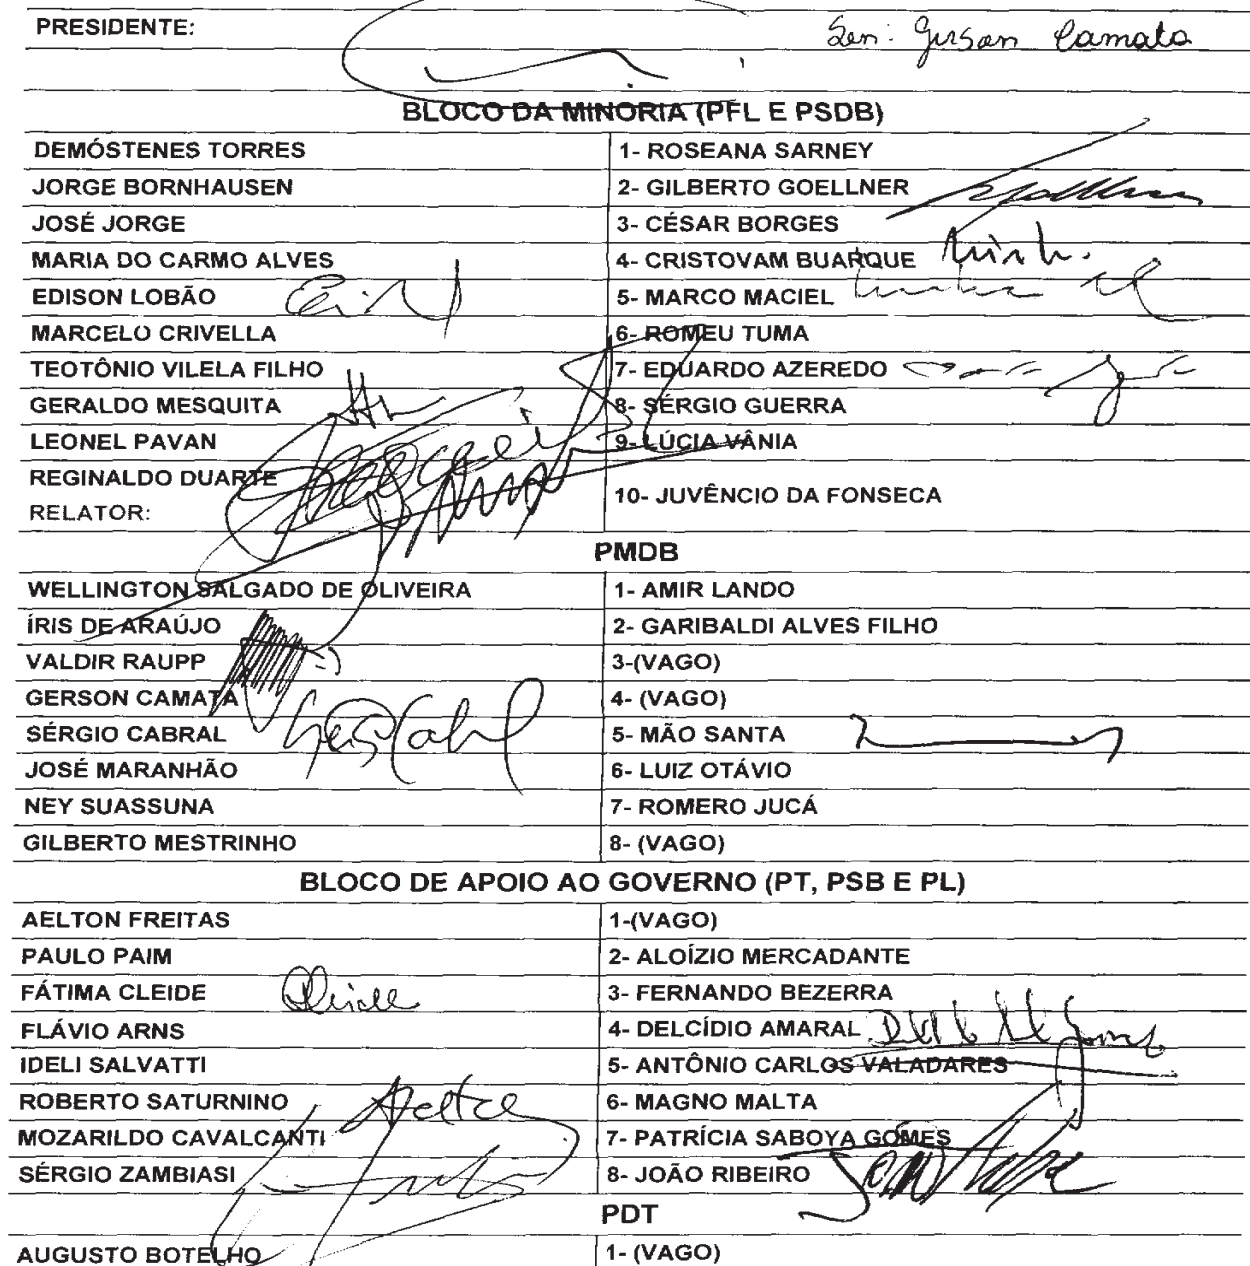 PRESIDENTE: Sen: Gerson Camata
BLOCO DA MINORIA (PFL E PSDB)
DEMÓSTENES TORRES 1- ROSEANA SARNEY
JORGE BORNHAUSEN 2- GILBERTO GOELLNER
JOSÉ JORGE 3- CÉSAR BORGES
MARIA DO CARMO ALVES 4- CRISTOVAM BUARQUE
EDISON LOBÃO 5- MARCO MACIEL
MARCELO CRIVELLA 6- ROMEU TUMA
TEOTÔNIO VILELA FILHO 7- EDUARDO AZEREDO
GERALDO MESQUITA 8- SÉRGIO GUERRA
LEONEL PAVAN 9- LÚCIA VÂNIA
REGINALDO DUARTE
RELATOR: 10- JUVÊNCIO DA FONSECA
PMDB
WELLINGTON SALGADO DE OLIVEIRA 1- AMIR LANDO
ÍRIS DE ARAÚJO 2- GARIBALDI ALVES FILHO
VALDIR RAUPP 3-(VAGO)
GERSON CAMATA 4- (VAGO)
SÉRGIO CABRAL 5- MÃO SANTA
JOSÉ MARANHÃO 6- LUIZ OTÁVIO
NEY SUASSUNA 7- ROMERO JUCÁ
GILBERTO MESTRINHO 8- (VAGO)
BLOCO DE APOIO AO GOVERNO (PT, PSB E PL)
AELTON FREITAS 1-(VAGO)
PAULO PAIM 2- ALOÍZIO MERCADANTE
FÁTIMA CLEIDE 3- FERNANDO BEZERRA
FLÁVIO ARNS 4- DELCÍDIO AMARAL
IDELI SALVATTI 5- ANTÔNIO CARLOS VALADARES
ROBERTO SATURNINO 6- MAGNO MALTA
MOZARILDO CAVALCANTI 7- PATRÍCIA SABOYA GOMES
SÉRGIO ZAMBIASI 8- JOÃO RIBEIRO
PDT
AUGUSTO BOTELHO 1- (VAGO)